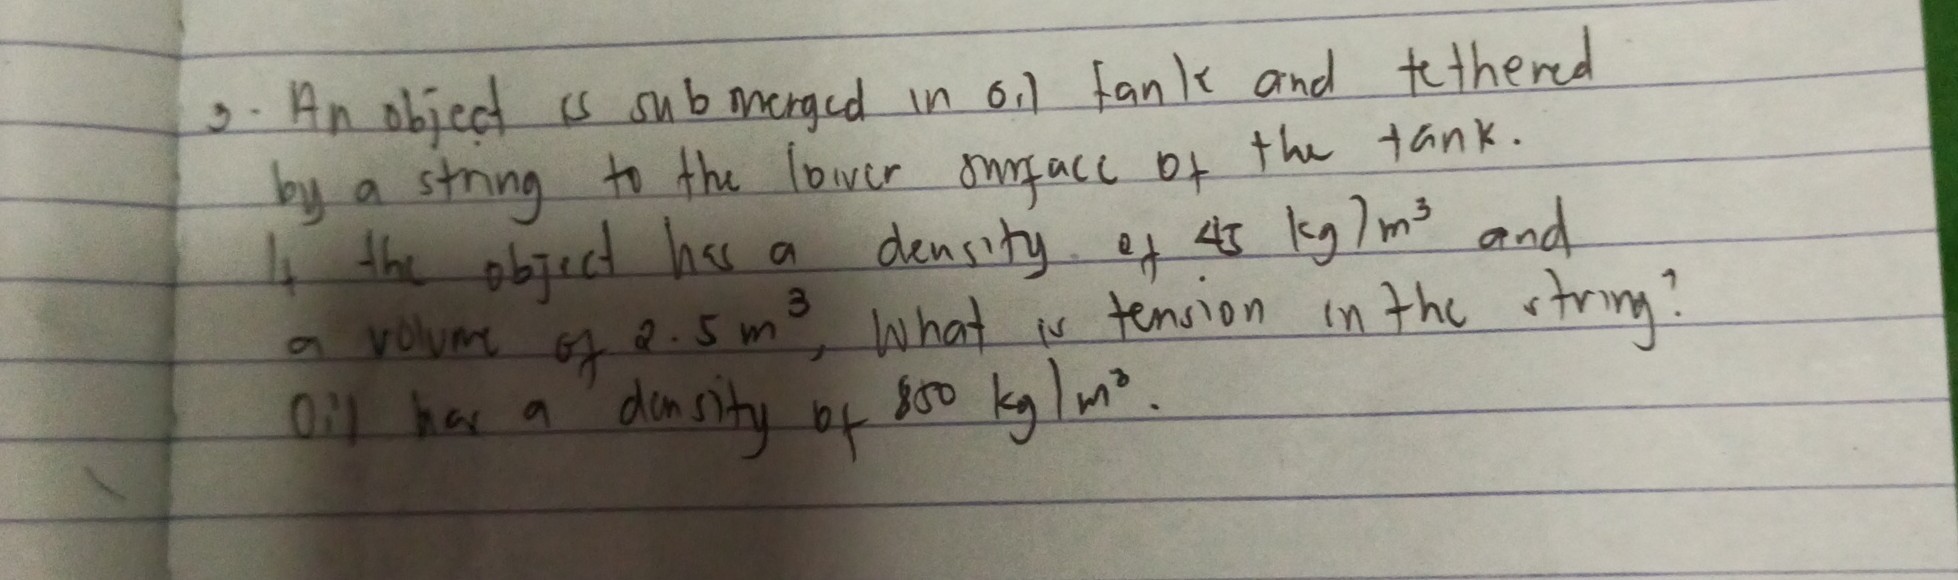 3. An object is submerged in oil tank and tethered
by a string to the lower surface of the tank.
If the object has a density of 45 kg/m³ and
a volume of 2.5 m³, What is tension in the string?
Oil has a density of 850 kg/m³.